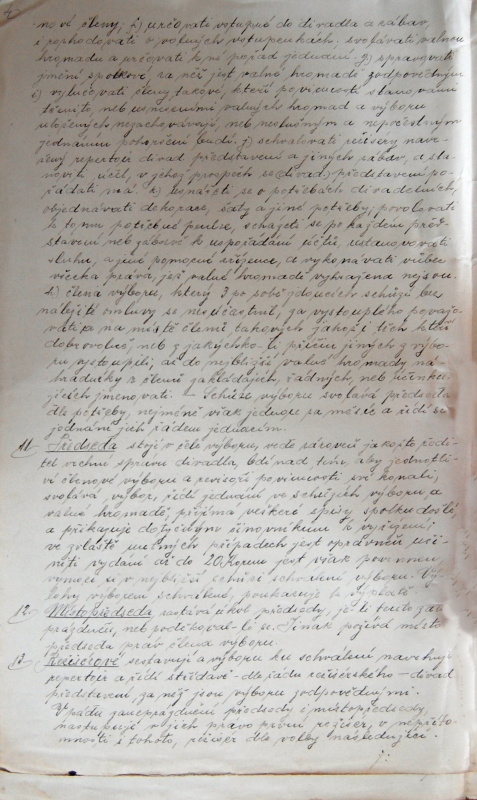 nové členy; f.) určovati vstupné do divadla a zábav,
i rozhodovati o volných vstupenkách, svolávati valnou
hromadu a určovati k ní pořad jednání. g.) spravovati
jmění spolkové, za něž jest valné hromadě zodpovědným
i.) vylučovati členy takové, kteří povinností stanovami
těmito, neb usneseními valných hromad a výboru
uložených nezachovávají, neb neslušným a nepočestným
jednáním pohoršení budí. j.) schvalovati režiséry navr-
žený repertoir divad. představení a jiných zábav, a sta-
noviti účel, v jehož prospěch se (divad.) představení po-
řádati má. k.) usnášeti se o potřebách divadelních,
objednávati dekorace, šaty a jiné potřeby; povolovati
k tomu potřebné peníze, scházeti se po každém před-
stavení neb zábavě k uspořádání účtů, ustanovovati
sluhu, a jiné pomocné zřízence, a vykonávati vůbec
všecka práva, jež valné hromadě vyhrazena nejsou.
l.) člena výboru, který 3 po sobě jdoucích schůzí bez
náležité omluvy se nesúčastnil, za vystouplého považo-
vati, a na místě členů takových jakož i těch, kteří
dobrovolně neb z jakýchko-li příčin jiných z výbo-
ru vystoupili, až do nejbližší valné hromady ná-
hradníky z členů zakládajících, řádných, neb účinku-
jících jmenovati. – Schůze výboru svolává předseda
dle potřeby, nejméně však jednou za měsíc a řídí se
jednání jich řádem jednacím.
11. Předseda stojí v čele výboru, vede zároveň jakožto ředi-
tel vrchní správu divadla, bdí nad tím, aby jednotli-
ví členové výboru a revisoři povinnosti své konali,
svolává výbor, řídí jednání ve schůzích výboru a
valné hromadě, přijímá veškeré spisy spolku došlé,
a přikazuje dotyčným činovníkům k vyřízení;
ve zvláště nutných případech jest oprávněn uči-
niti vydání až do 20 Korun jest však povinen
vymoci si v nejbližší schůzi schválení výboru. Vý-
lohy výborem schválené, poukazuje k výplatě.
12. Místopředseda zastává úkol předsedy, je-li tento za-
prázdněn, neb poděkoval-li se. Jinak požívá místo-
předseda práv člena výboru.
13. Režisérové sestavují a výboru ku schválení navrhují
repertoir a řídí střídavě – dle řádu režisérského – divad.
představení, za něž jsou výboru zodpovědnými.
V pádu zaneprázdnění předsedy i místopředsedy,
nastupuje v jich právo první režisér, v nepříto-
mnosti i tohoto, režisér dle volby následující.